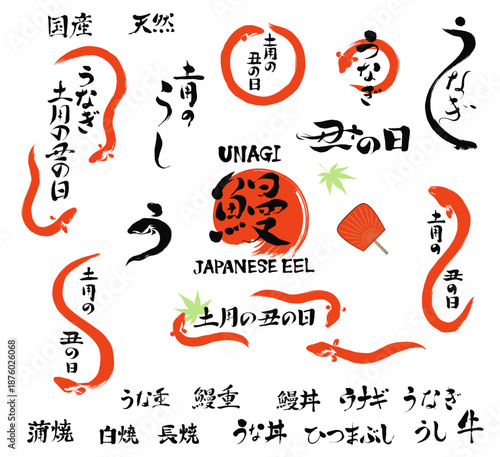 国産
天然
うなぎ
土用の丑の日
土用の
うし
土用の
丑の日
うなぎ
うなぎ
の日
UNAGI
鰻
JAPANESE EEL
う
土用の
丑の日
土用の
丑の日
土用の丑の日
うな重
鰻重
鰻丼
ウナギ
うなぎ
蒲焼
白焼
長焼
うな丼
ひつまぶし
うし
牛
Adobe Stock | #1876026068